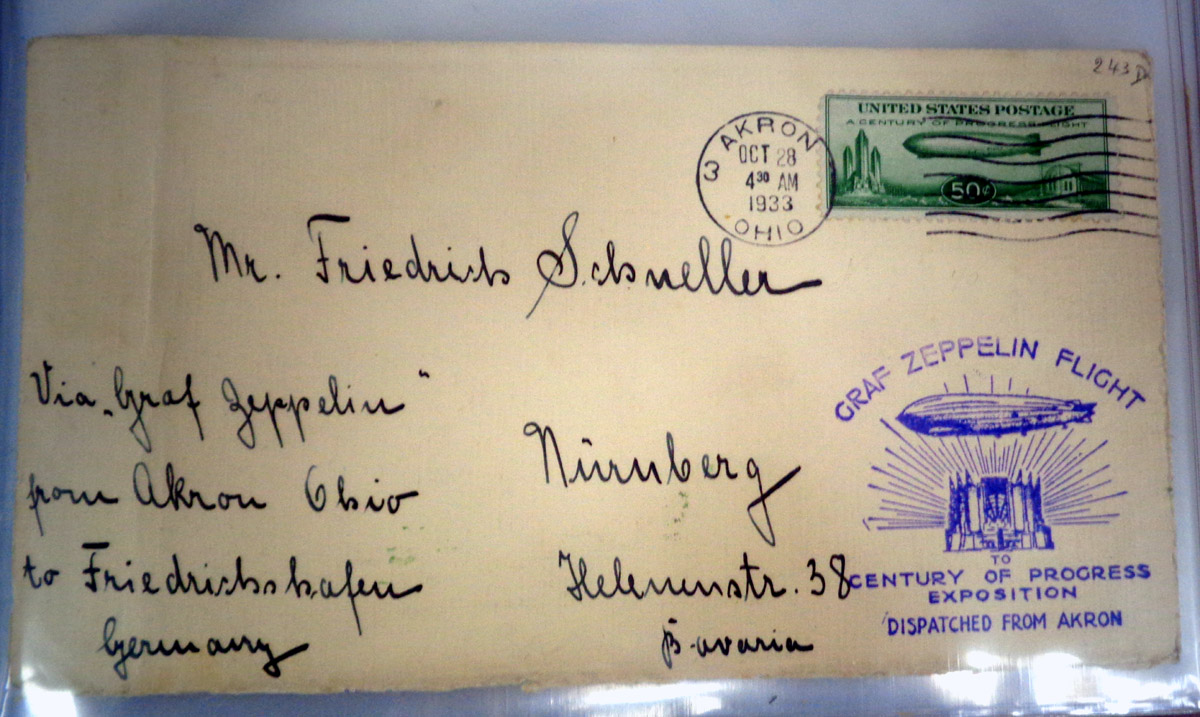 243 D
UNITED STATES POSTAGE
A CENTURY OF PROGRESS FLIGHT
50¢
3 AKRON
OCT 28
4 30 AM
1933
OHIO
Mr. Friedrich Schneller
Via „Graf Zeppelin“
from Akron Ohio
to Friedrichshafen
Germany
Nürnberg
Helenenstr. 38
Bavaria
GRAF ZEPPELIN FLIGHT
TO
CENTURY OF PROGRESS
EXPOSITION
DISPATCHED FROM AKRON